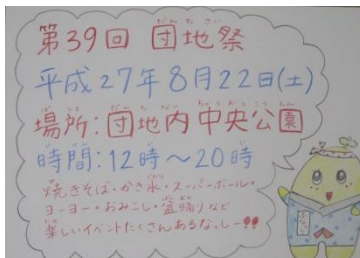 第39回 団地祭
平成27年8月22日(土)
場所:団地内中央公園
時間:12時～20時
焼きそば・かき氷・スーパーボール・
ヨーヨー・おみこし・盆踊りなど
楽しいイベントたくさんあるなっしー!!